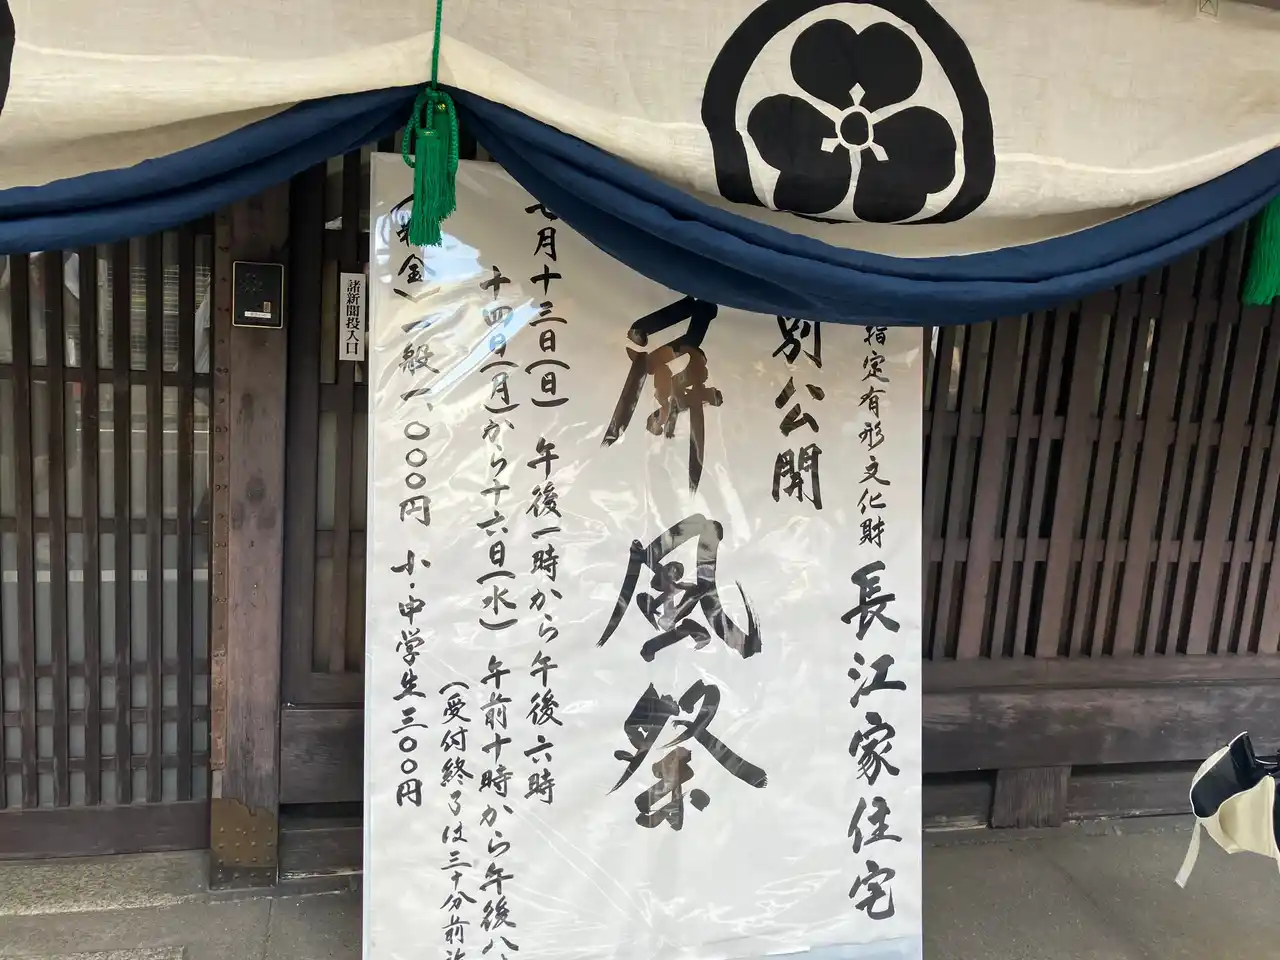 指定有形文化財 長江家住宅
別公開
屏風祭
七月十三日(日) 午後一時から午後六時
十四日(月)から十六日(水) 午前十時から午後八
(受付終了は三十分前
(料金) 一般一、〇〇〇円 小・中学生三〇〇円
諸新聞投入口